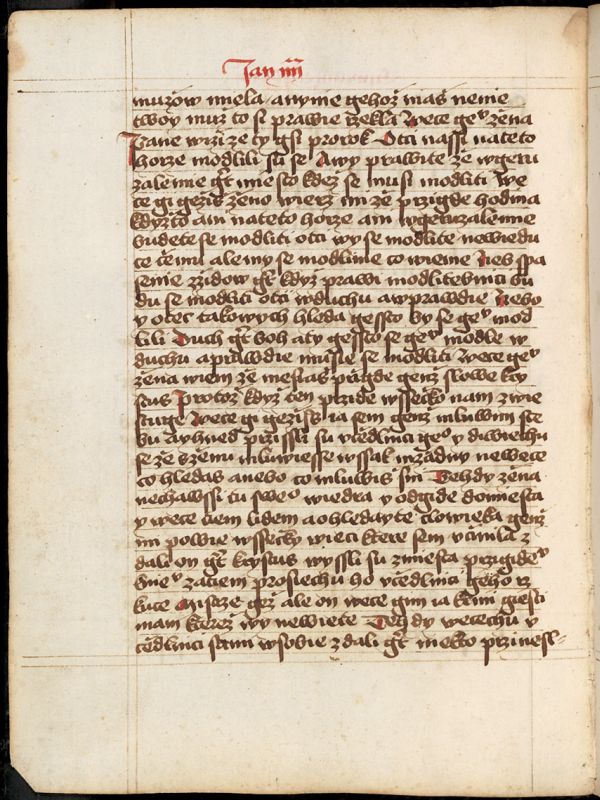 Jan iiii
muzow miela / anynie gehoz mas nenie
twoy muz to si prawie rzekla Wece geu zena
Pane wizi ze ty gsi prorok Otci nassi nateto
horze modlili su se Awy prawite ze wgeru
zalemie gt miesto kdez se musi modliti We
ce gi gezis zeno wierz mi ze przigde hodina
kdyzto ani nateto horze ani wgeruzalemie
budete se modliti otci wy se modlite newiedu
ce czemu ale my se modlime co wieme Neb spa
senie zzidow gt kdyz prawi modlitebnici bu
du se modliti otci wduchu awprawdie Nebo
y otec takowych hleda gessto by se geu mod
lili Duch gt boh aty gessto se geu modle w
duchu aprawdie musie se modliti Wece geu
zena wiem ze mesias przigde genz slowe kry
stus Protoz kdyz ten przide wssecko nam zwie
stuge Wece gi gezis ia sem genz mluwim ste
bu ayhned przissli su ucedlnici geo y diwiechu
se ze szenu mluwiesse wssak nizadny newece
co hledas anebo co mluwis sni Tehdy zena
nechawssi tu sweo wiedra y odgide domiesta
y wece tiem lidem aohledayte clowieka genz
mi powie wssecky wieci ktere sem ucinila z
dali on gt krystus wyssli su zmiesta przigideu
knieu zatiem prosiechu ho ucedlnici geho rz
kuce Mistrze gez ale on wece gim ia krmi giesti
mam kterez wy newiete Tehdy wecechu y
ucedlnici sami wsobie zdali gt niekto przinesl